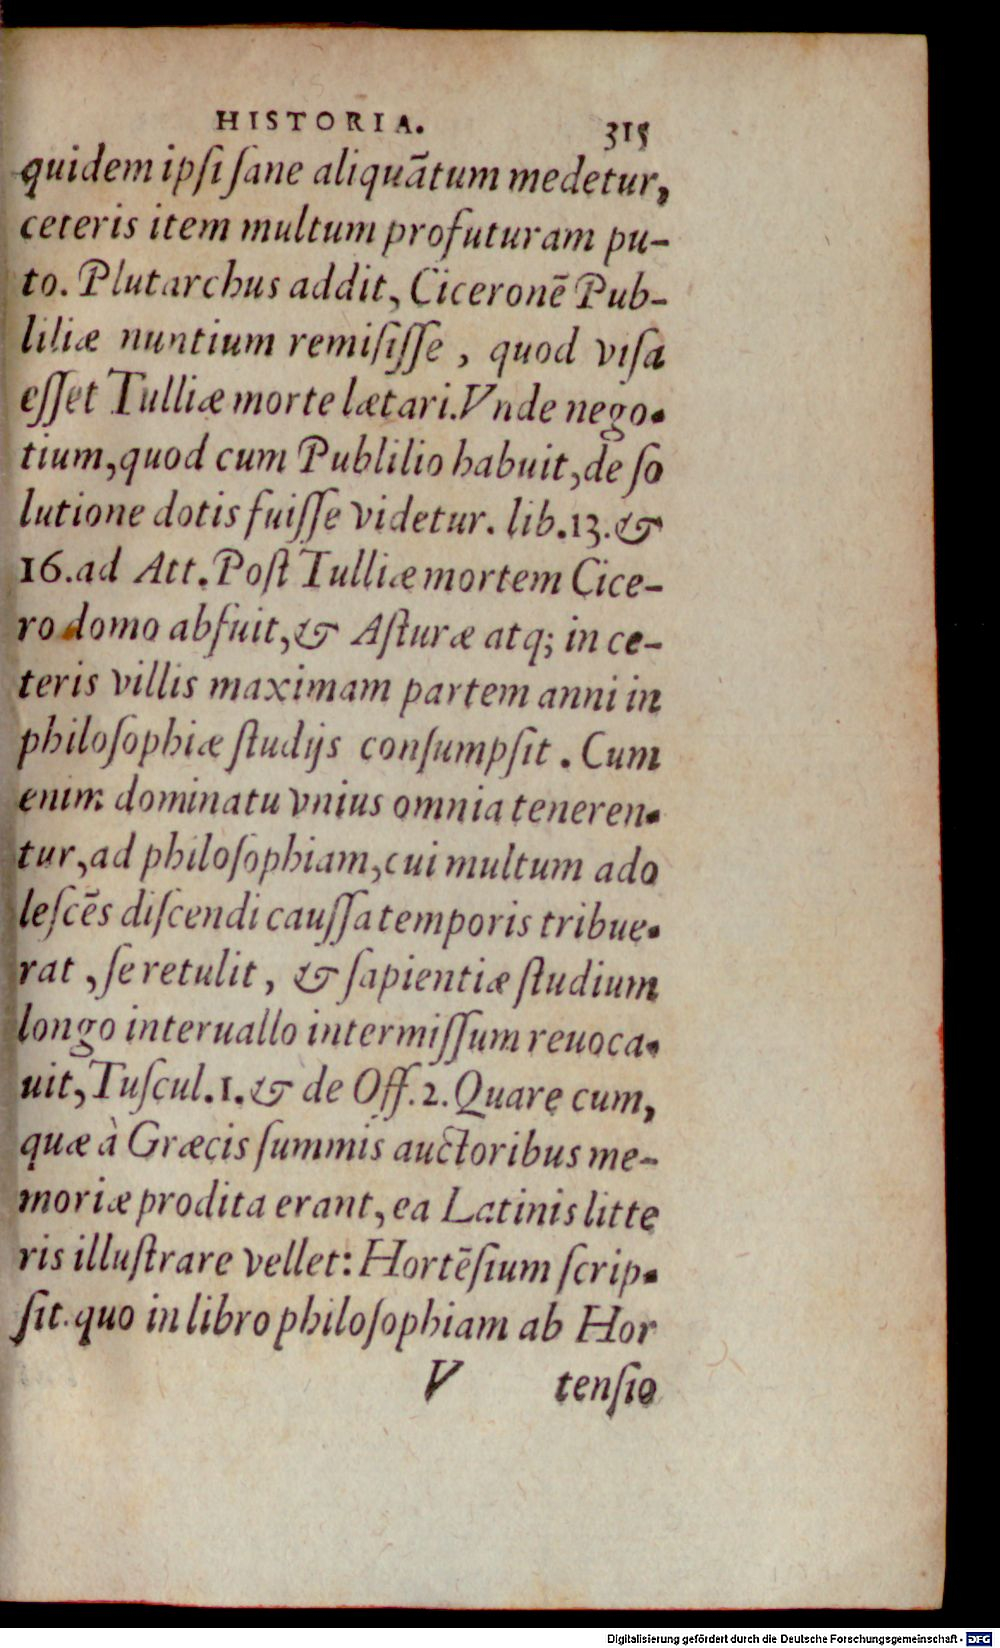 HISTORIA. 315
quidem ipsi sane aliquãtum medetur,
ceteris item multum profuturam pu-
to. Plutarchus addit, Ciceronẽ Pub-
liliæ nuntium remisisse, quod visa
esset Tulliæ morte lætari. Vnde nego-
tium, quod cum Publilio habuit, de so
lutione dotis fuisse videtur. lib. 13. &
16. ad Att. Post Tulliæ mortem Cice-
ro domo abfuit, & Asturæ atq; in ce-
teris villis maximam partem anni in
philosophiæ studijs consumpsit. Cum
enim dominatu vnius omnia teneren-
tur, ad philosophiam, cui multum ado
lescẽs discendi caussa temporis tribue-
rat, se retulit, & sapientiæ studium
longo interuallo intermissum reuoca-
uit, Tuscul. 1. & de Off. 2. Quare cum,
quæ à Græcis summis auctoribus me-
moriæ prodita erant, ea Latinis litte
ris illustrare vellet: Hortẽsium scrip-
sit. quo in libro philosophiam ab Hor
V tensio
Digitalisierung gefördert durch die Deutsche Forschungsgemeinschaft - DFG